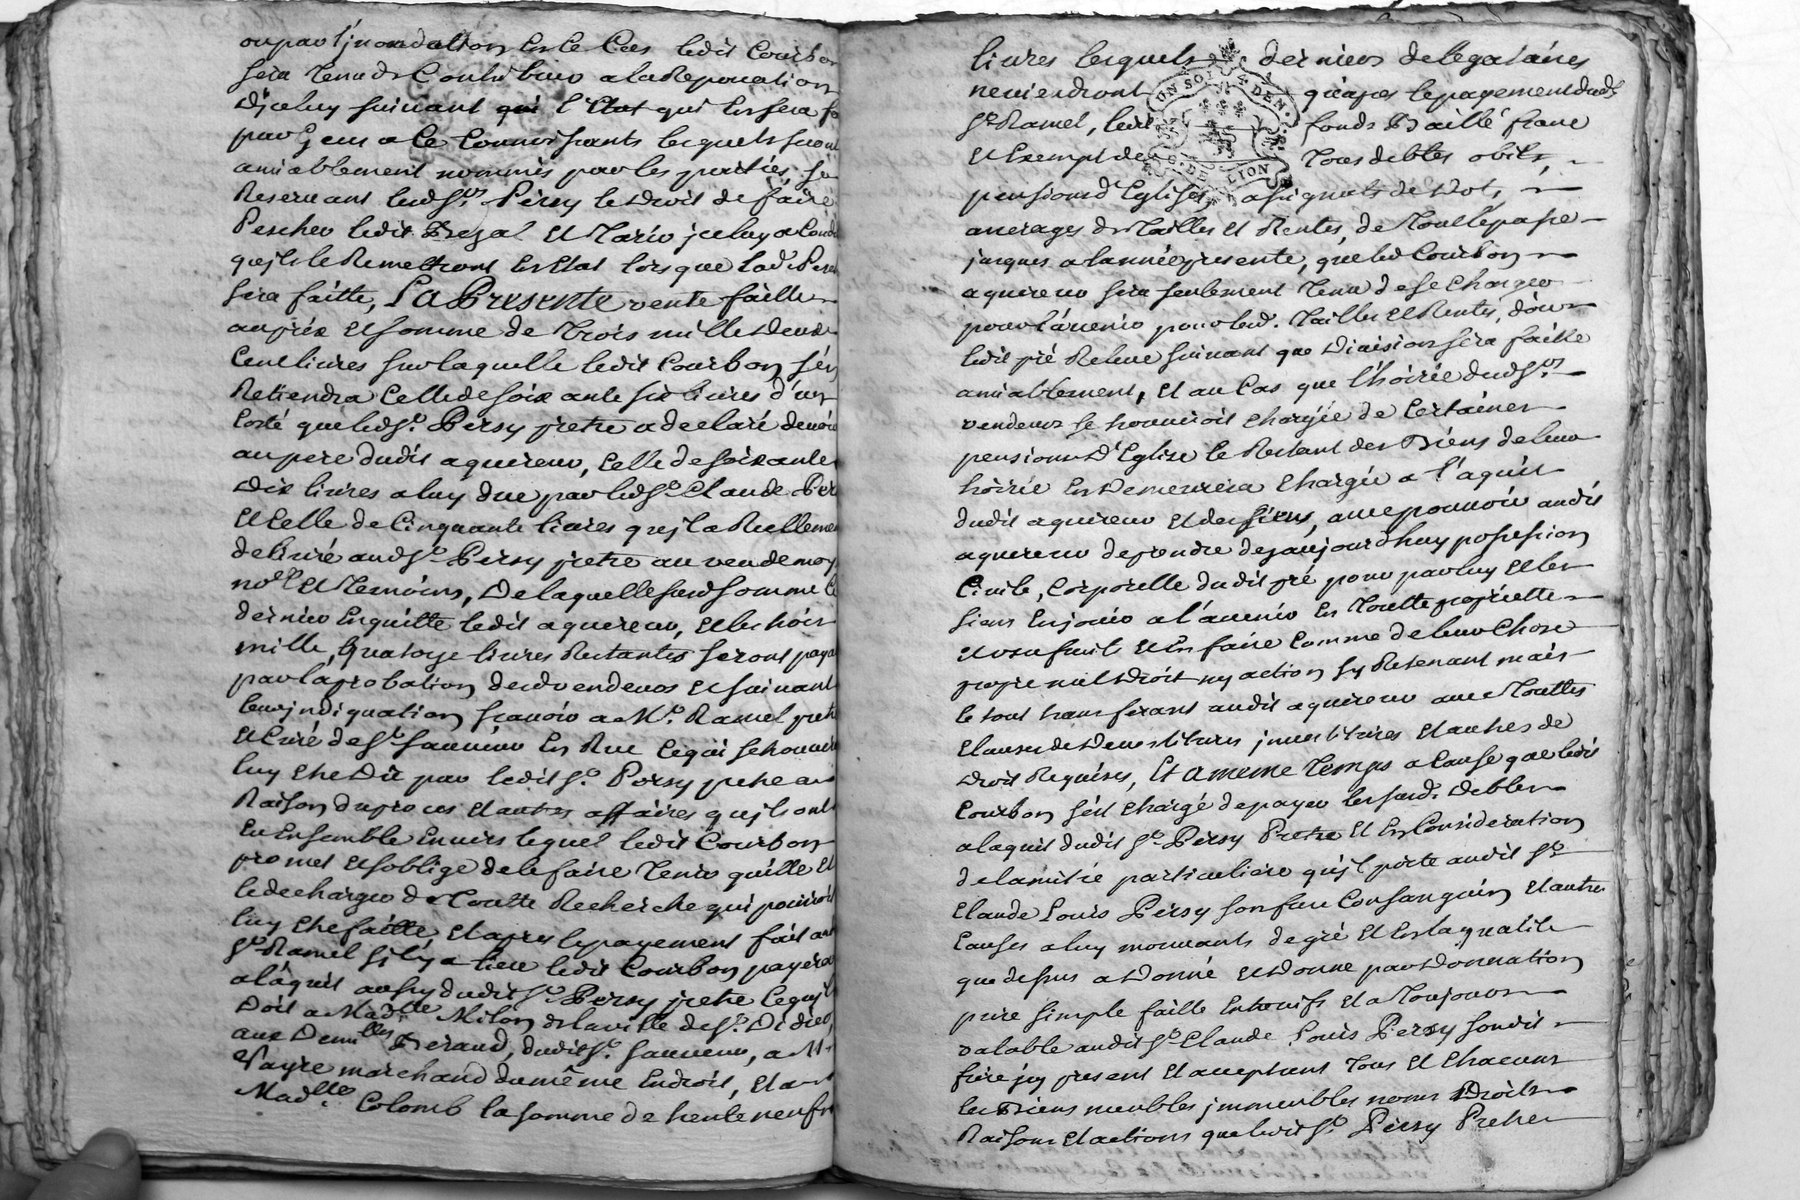 ou par l'jnondation En Ce Cas ledit Courbon
sera tenu de Contribuer a la Reparation
Djceluy suivant qui l'Etat qui En sera fa
par Gens a Ce Connoissants lesquels seront
amiablement nommés par les parties, se
Reservant lesd. srs Persy le Droit de faire
Pescher ledit Bezal Et Tarir jceluy a Condi
qu'jls le Remettront En Etat lorsque lad. Pesc
sera faitte, La Presente vente faitte
au prix Et somme de Trois mille Deux
Cent livres sur laquelle ledit Courbon s'en
Retiendra Celle de soixante six livres d'un
Costé que led. sr. Persy pretre a declaré devoir
au pere dudit aquereur, Celle de soixante
Dix livres a luy due par led. sr. Claude Per
Et Celle de Cinquante livres qu'jl a Reellemen
delivré aud. sr. Persy pretre au veu de moy
no.re Et Temoins, De laquelle susd. somme Ce
dernier En quitte ledit aquereur, Et les trois
mille, Quatorze livres Restantes seront paya
par laprobation desd. vendeurs Et suivant
leur jndiquation sçavoir a Mr. Ramel pretre
Et Curé de St. Sauveur En Rue Ce qui se trouvera
luy Etre Du par ledit sr. Persy pretre a
Raison du proces Et autres affaires qu'jls ont
Eu Ensemble Envers lequel ledit Courbon
promet Et s'oblige de le faire Tenir quitte Et
le decharger de Toutte Recherche qui pourroit
luy Etre faitte Et apres le payement fait au
sr. Ramel s'il y a lieu ledit Courbon payera
a l'aquit aussy dudit sr. Persy pretre Ce qu'jl
Doit a Mad.lle Milon de la ville de St. Didier,
aux Dem.lles Beraud, dudit St. Sauveur, a Mr.
Vayre marchand du même Endroit, Et a
Mad.lle Colomb la somme de trente neuf
livres lesquels derniers delegataires
ne viendront qu'apres le payement dudt.
sr. Ramel, ledit fonds Baillé franc
Et Exempt de Tous debtes obits,
pensions d'Eglise, assignats de Dot,
arrerages de Tailles Et Rentes, de Tout le passé
jusques a l'année presente, que led. Courbon
aquereur sera seulement Tenu de se Charger
pour l'avenir pour lesd. Tailles Et Rentes, dont
ledit pré Releve suivant que Division sera faitte
amiablement, Et au Cas que l'hoirie desd. srs.
vendeurs se trouveroit Chargée de Certaines
pensions D'Eglise le Restant des Biens de leur
hoirie En Demeurera Chargée a l'aquit
dudit aquereur Et des siens, avec pouvoir audit
aquereur de prendre dez aujourd'huy possession
Civile, Corporelle dudit pré pour par luy Et les
siens En jouir a l'avenir En Toutte proprietté
Et usufruit Et En faire Comme de leur Chose
propre nul Droit ny action s'y Retenant mais
le tout transferant audit aquereur avec Touttes
Clauses de Devestitures jnvestitures Et autres de
Droit Requises, Et a meme Temps a Cause que ledit
Courbon s'est Chargé de payer les susd. Debtes
a laquit dudit sr. Persy Pretre Et En Consideration
de lamitié particuliere qu'jl porte audit sr.
Claude Louis Persy son frere Consanguin Et autres
Causes a luy mouvants de gré Et En la qualité
que dessus a Donné Et Donne par Donnation
pure simple faitte Entre vifs Et a Toujours
valable audit sr. Claude Louis Persy sondit
frere jcy present Et acceptant Tous Et Chacuns
les Biens meubles jmmeubles noms Droits
Raisons Et actions que ledit sr. Persy Pretre